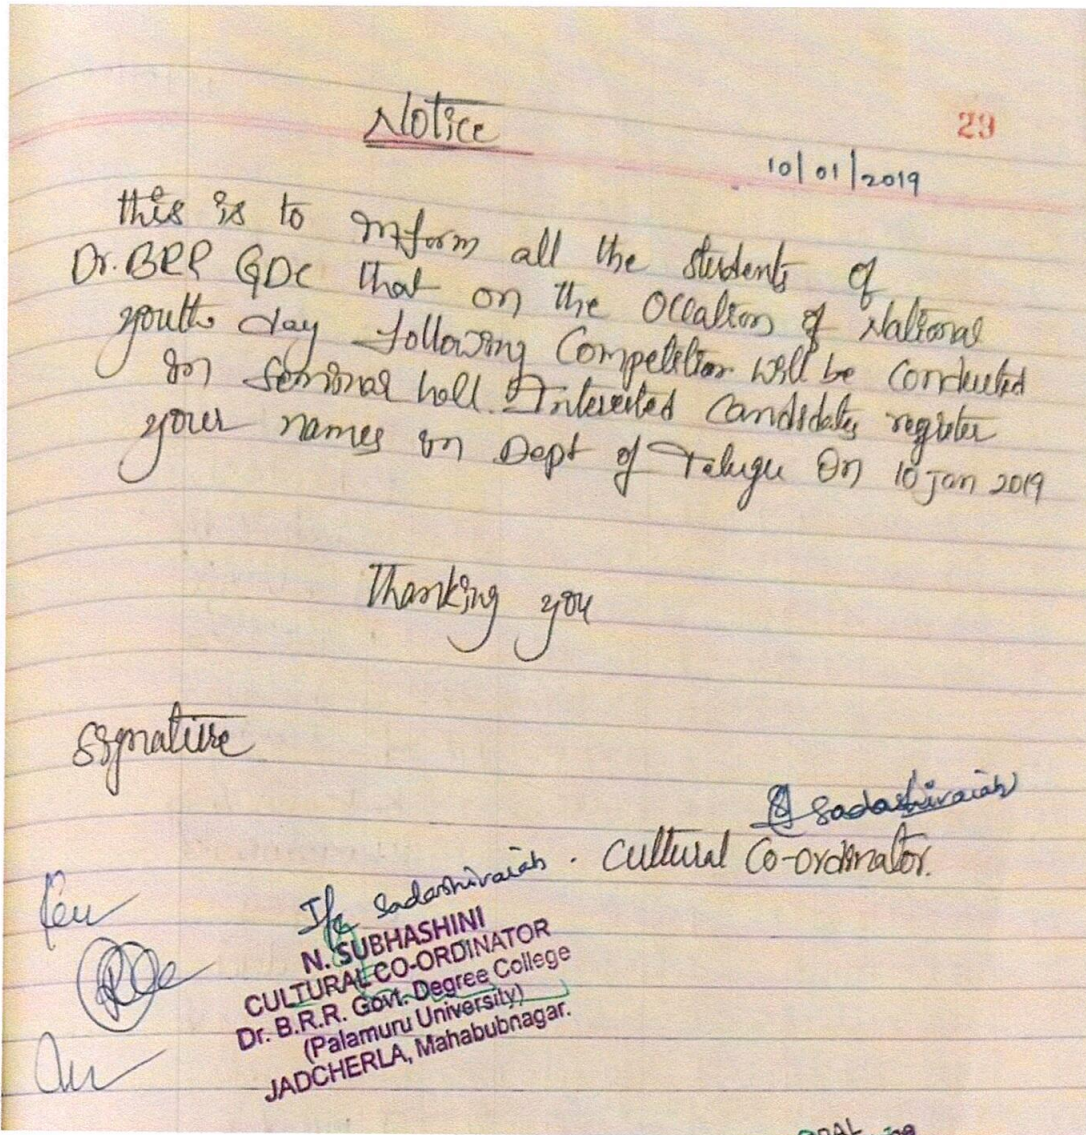 Notice
29
10/01/2019
this is to inform all the students of
Dr. BRR GDC that on the Occation of National
youth day following Competition will be conducted
in Seminar hall. Interested candidates register
your names in Dept of Telugu On 10 Jan 2019
Thanking you
Signature
Sadashivaiah
Cultural Co-ordinator.
Sadashivaiah
N. SUBHASHINI
CULTURAL CO-ORDINATOR
Dr. B.R.R. Govt. Degree College
(Palamuru University)
JADCHERLA, Mahabubnagar.